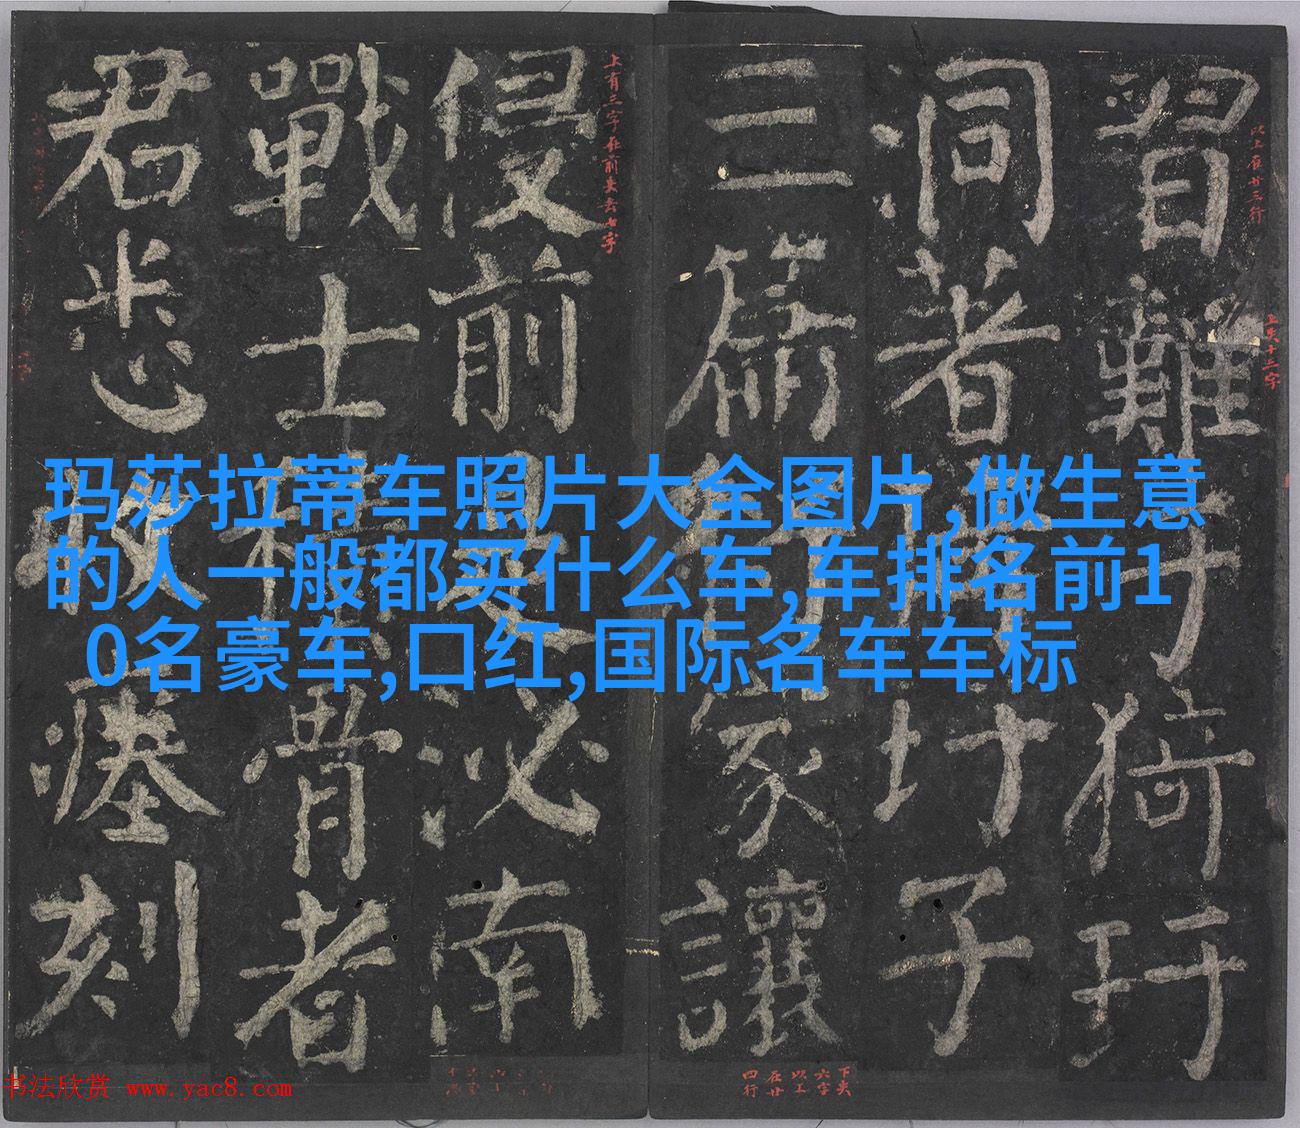 習難于猗玗
洞著猗玗子
三篇將家讓
侵前是泌南
戰士積骨者
君悉收瘞刻
以上在廿三行
上失十三字
上有三字在前失去七字
下失
六字
以上
在廿
四行
玛莎拉蒂车照片大全图片,做生意
的人一般都买什么车,车排名前1
0名豪车,口红,国际名车车标
书法欣赏 www.yac8.com